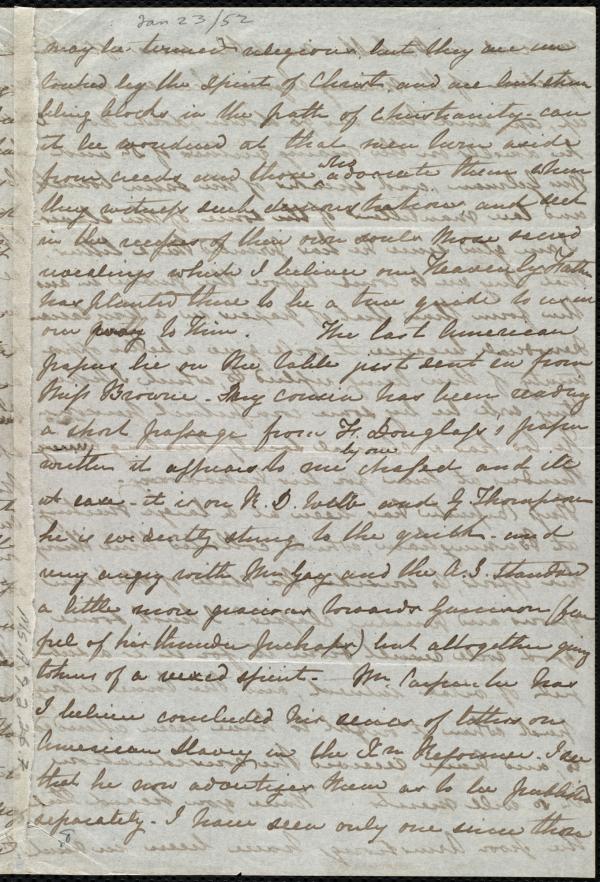 Jan 23/52
may be termed religious, but they are un
touched by the Spirit of Christ, and are but stum
bling blocks in the path of Christianity - can
it be wondered at that men turn aside
from creeds and those who advocate them when
they witness such demonstrations and feel
in the recesses of their own souls more sacred
revealings which I believe our Heavenly Father
has planted there to be a true guide to win
our way to Him. The last American
papers lie on the table just sent in from
Miss Browne. My cousin has been reading
a short passage from F. Douglass's paper
written it appears to me by one chafed and ill
at ease - it is on R. D. Webb and G. Thompson
he is evidently stung to the quick - and
very angry with Mr Gay and the A. S. Standard
a little more gracious towards Garrison (fear
ful of his thunder perhaps) but altogether giving
tokens of a vexed spirit - Mr Carpenter has
I believe concluded his series of letters on
American Slavery in the Inquirer. I see
that he now advertizes them as to be published
separately. I have seen only one since those
MS.A.9.2.26.7